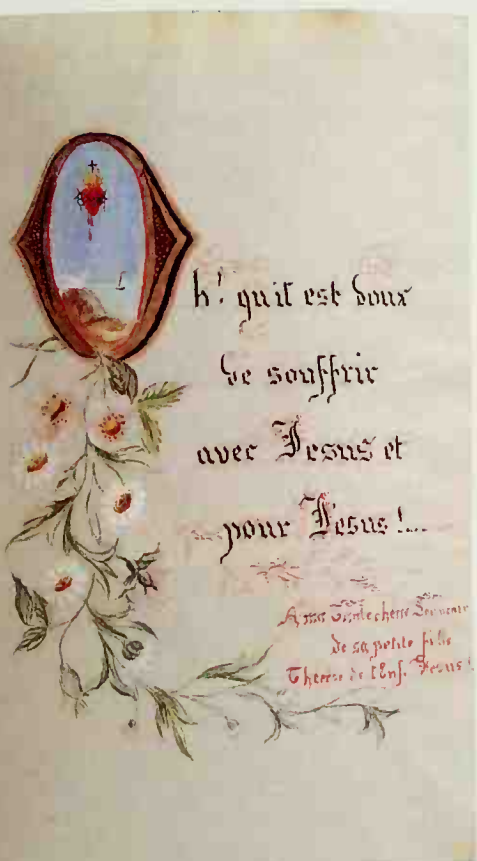 Oh! qu'il est doux
de souffrir
avec Jesus et
pour Jesus!...
A ma Tante chérie Souvenir
de sa petite fille
Thérèse de l'Enf. Jesus!